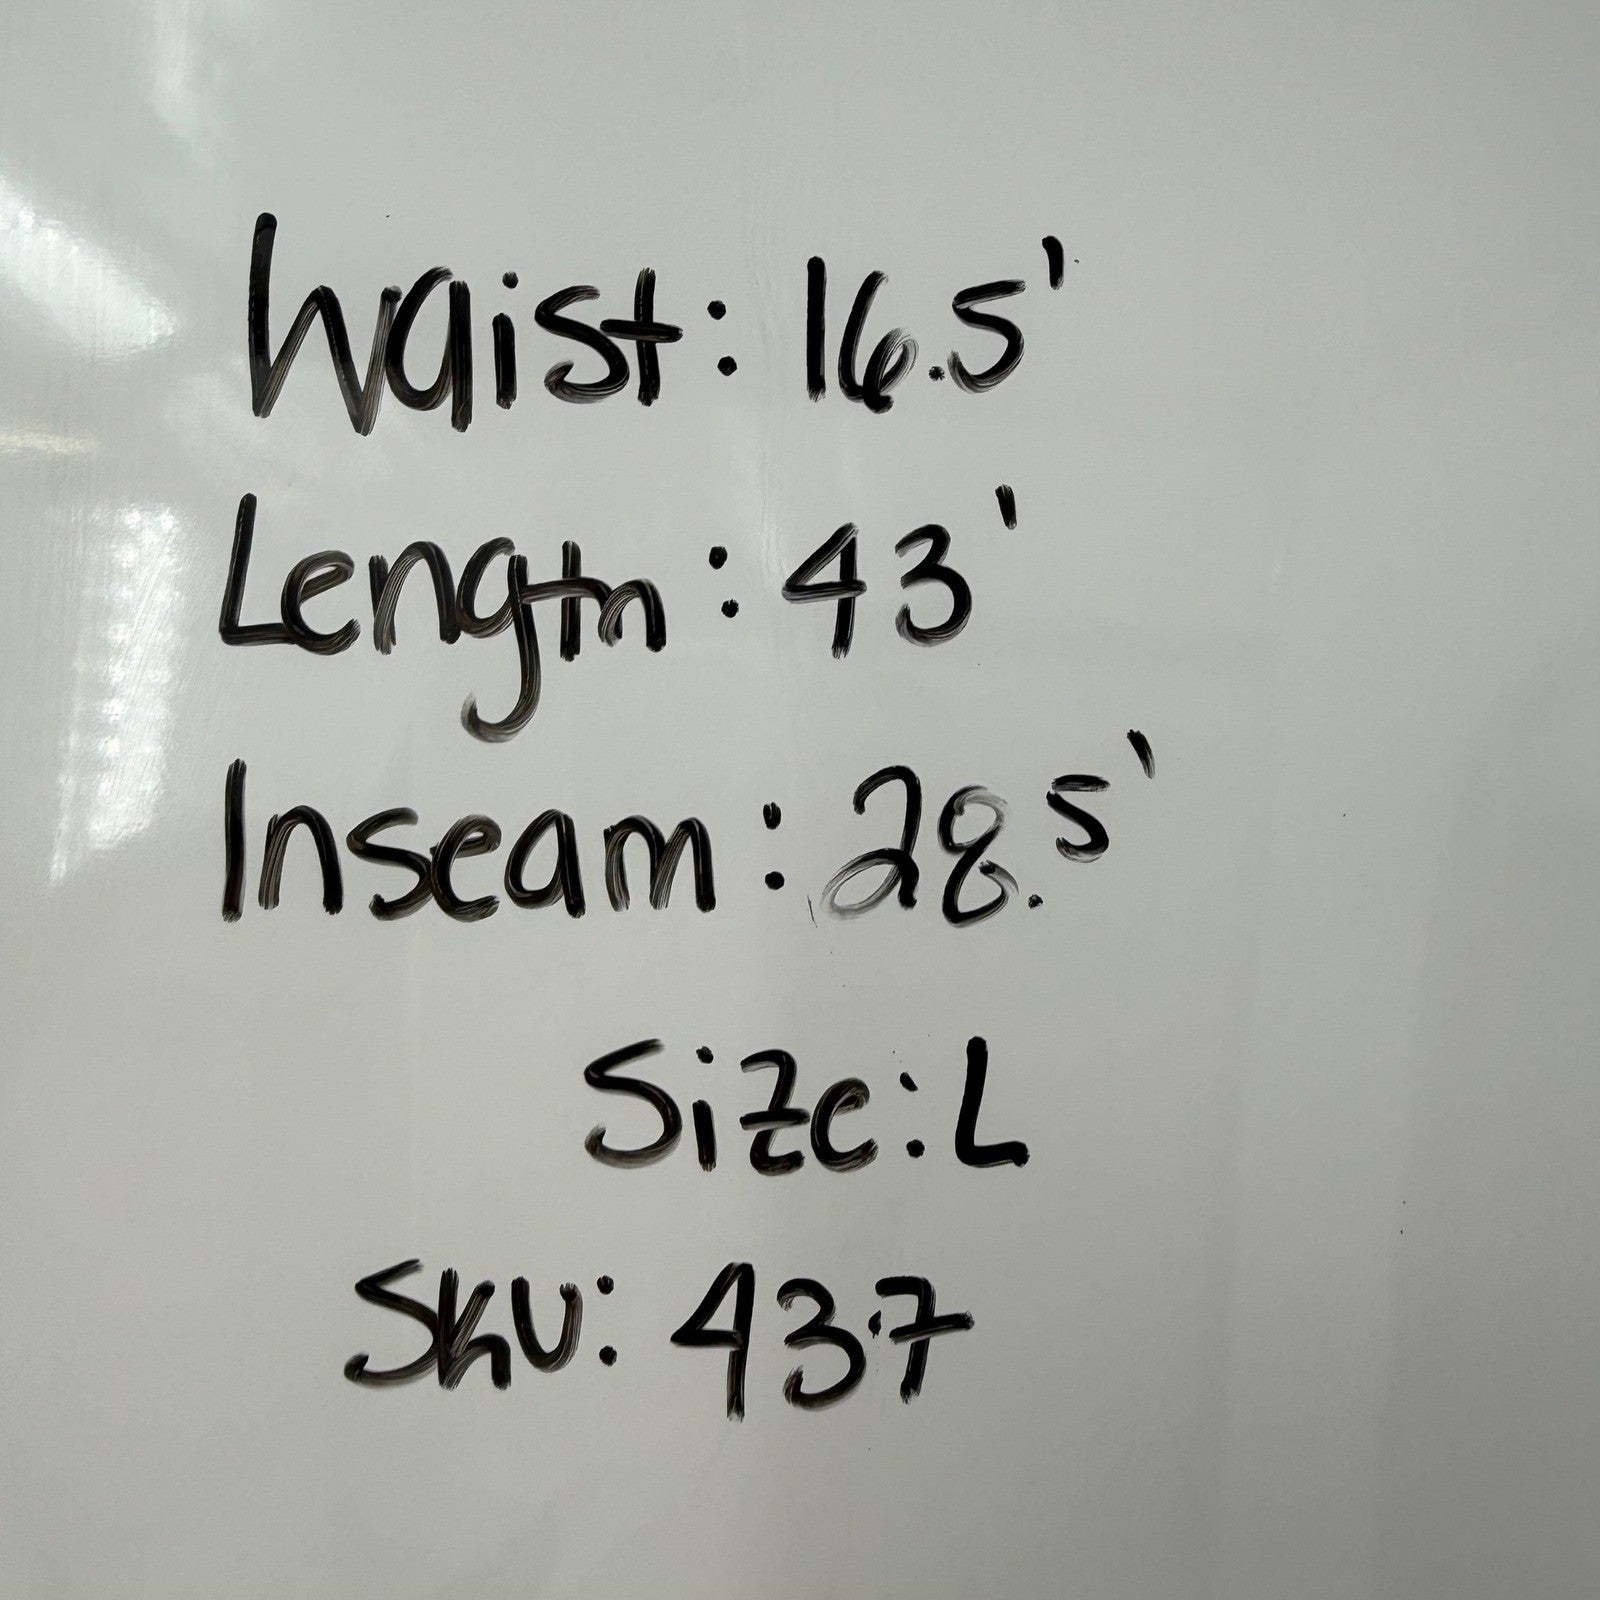 Waist: 16.5'
Length: 43'
Inseam: 28.5'
Size: L
Sku: 437